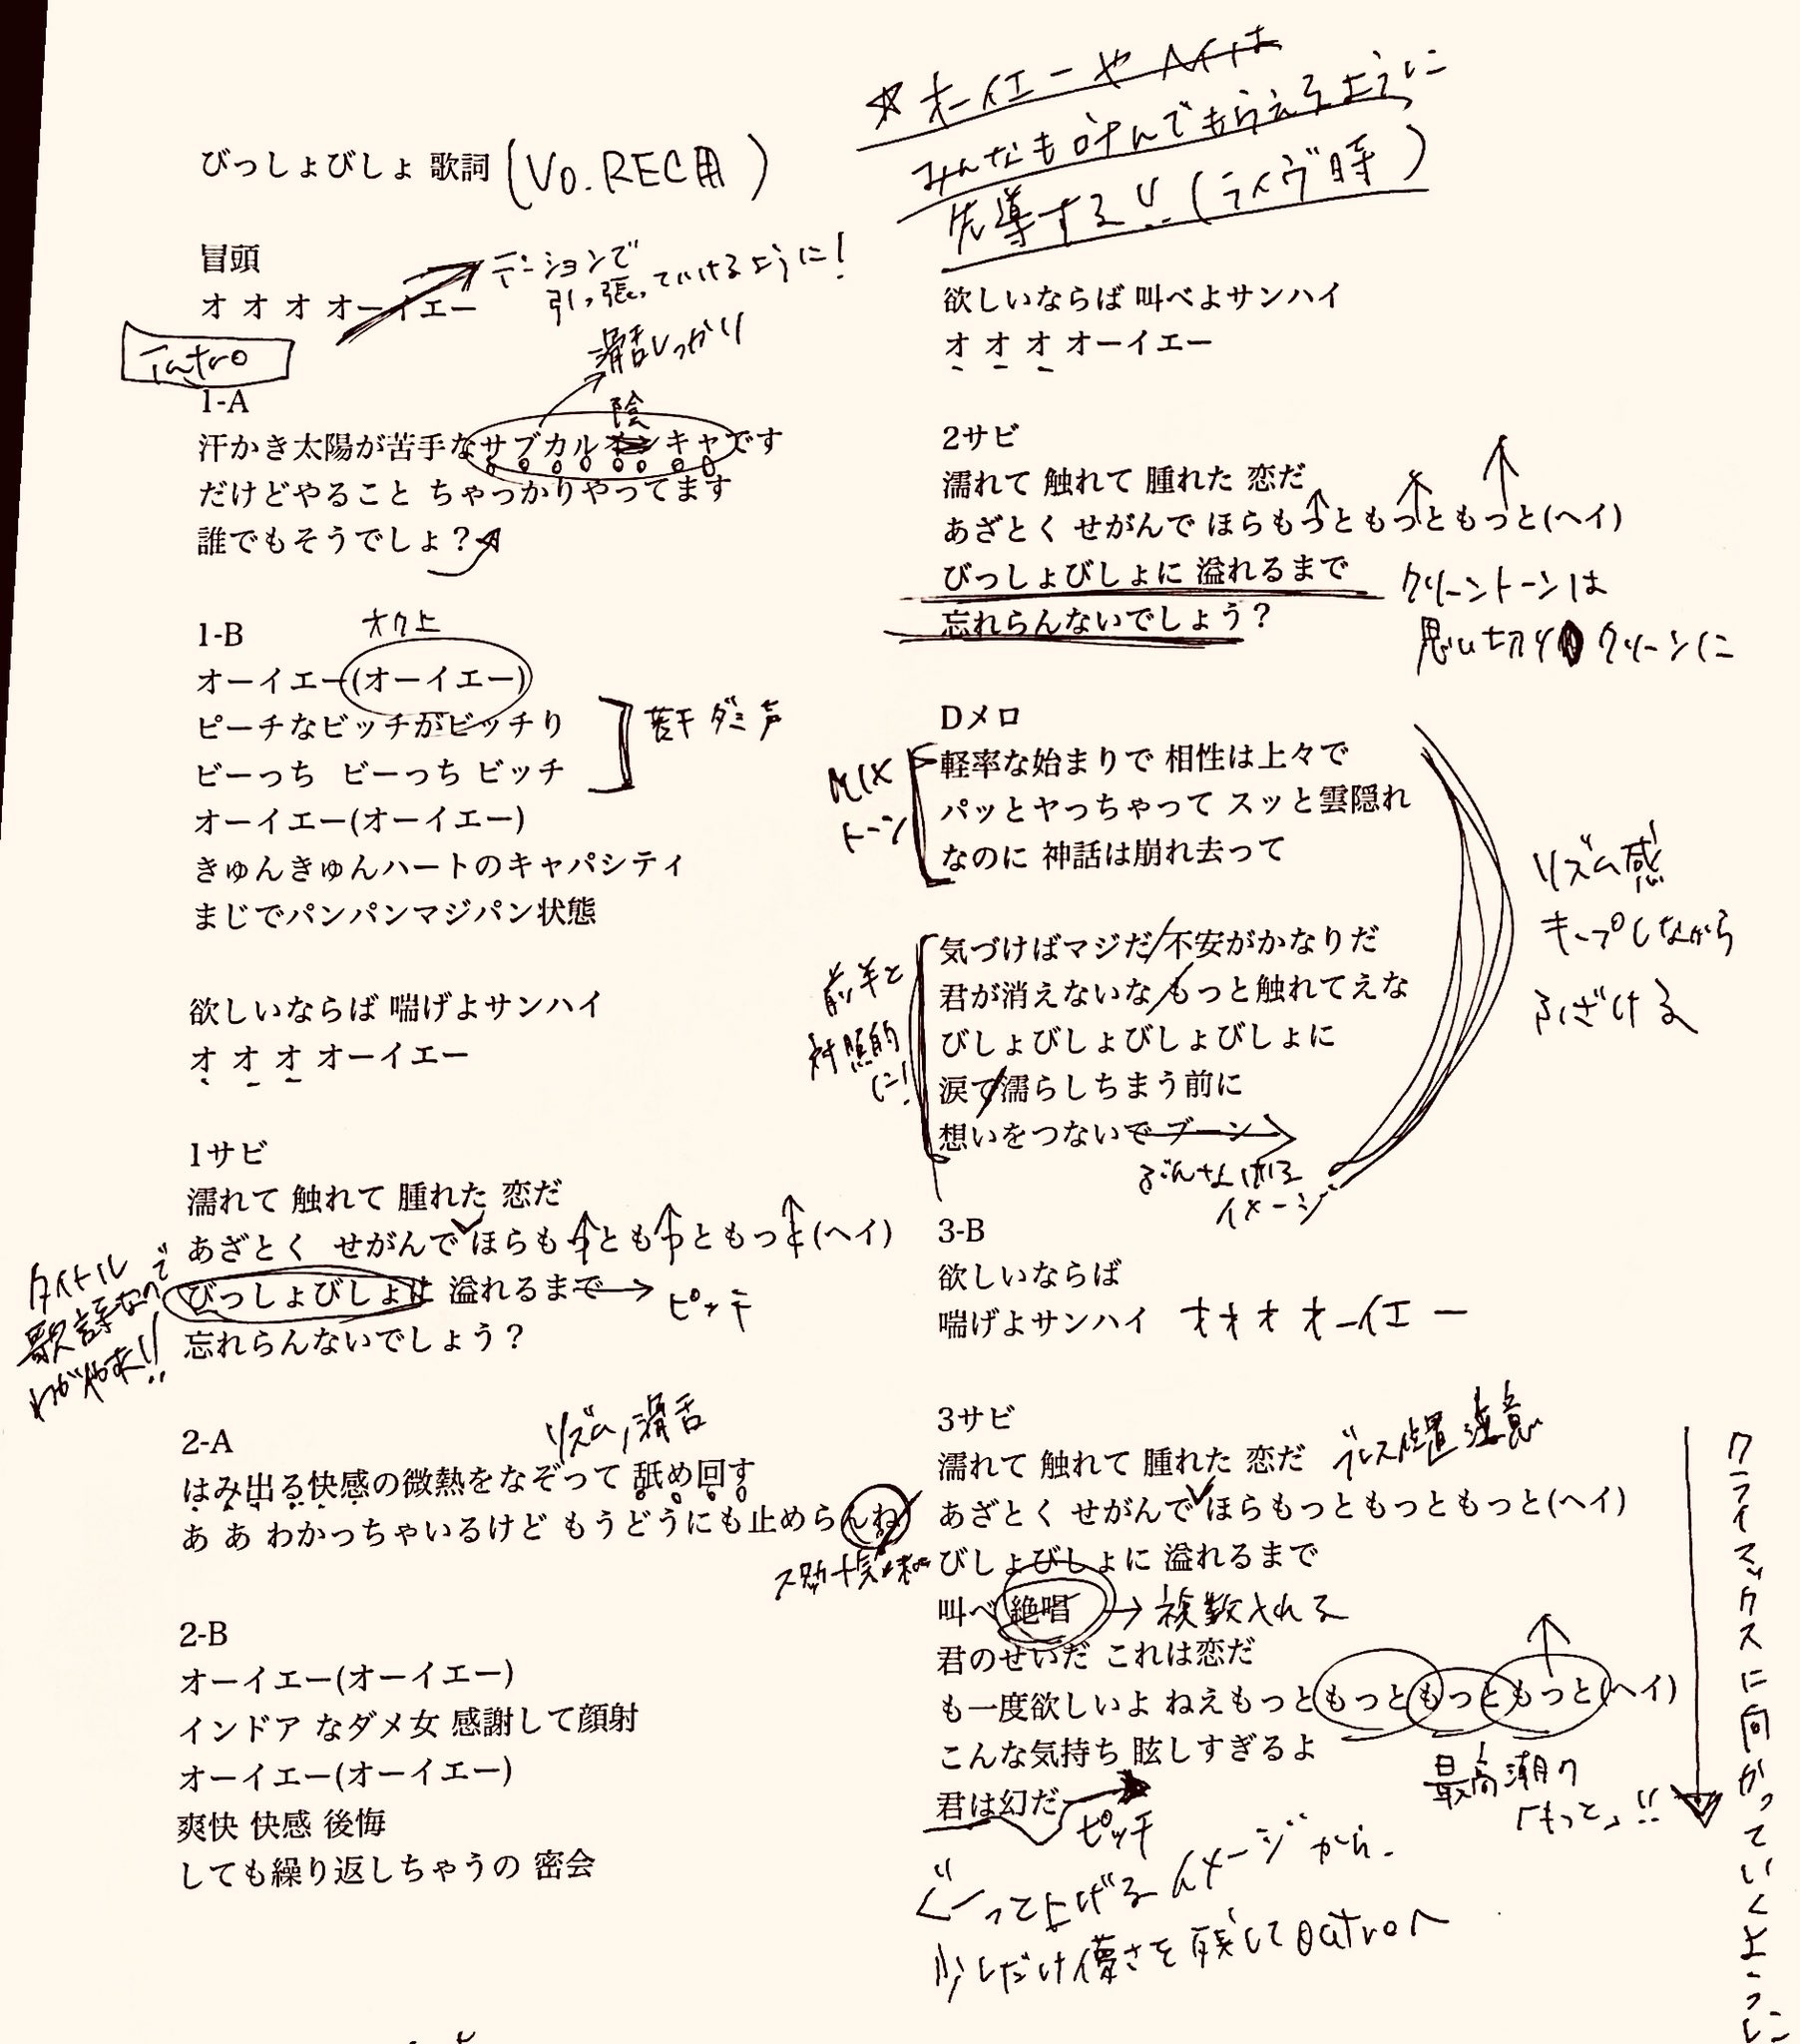 びっしょびしょ 歌詞 (Vo.REC用)
冒頭
オ オ オ オーイエー
テンションで
引っ張っていけるように!
Intro
滑舌しっかり
1-A
陰
汗かき太陽が苦手なサブカルオンキャです
だけどやること ちゃっかりやってます
誰でもそうでしょ?
1-B
オク上
オーイエー(オーイエー)
ピーチなビッチがビッチり
ビーっち ビーっち ビッチ
若干ダミ声
オーイエー(オーイエー)
きゅんきゅんハートのキャパシティ
まじでパンパンマジパン状態
欲しいならば 喘げよサンハイ
オ オ オ オーイエー
1サビ
濡れて 触れて 腫れた 恋だ
あざとく せがんで ほらもっともっともっと(ヘイ)
びっしょびしょに 溢れるまで
ピッチ
忘れらんないでしょう?
タイトル
歌詞なので
2-A
リズム,滑舌
はみ出る快感の微熱をなぞって 舐め回す
あ あ わかっちゃいるけど もうどうにも止めらんね
2-B
オーイエー(オーイエー)
インドア なダメ女 感謝して顔射
オーイエー(オーイエー)
爽快 快感 後悔
しても繰り返しちゃうの 密会
☆オーイエーやヘイは
みんなも叫んでもらえるように
先導する!!(ライヴ時)
欲しいならば 叫べよサンハイ
オ オ オ オーイエー
2サビ
濡れて 触れて 腫れた 恋だ
あざとく せがんで ほらもっともっともっと(ヘイ)
びっしょびしょに 溢れるまで
忘れらんないでしょう?
クリーントーンは
思い切りクリーンに
Dメロ
MIX
トーン
軽率な始まりで 相性は上々で
パッとヤっちゃって スッと雲隠れ
なのに 神話は崩れ去って
リズム感
キープしながら
ふざける
前半と
対照的
に!
気づけばマジだ 不安がかなりだ
君が消えないな もっと触れてえな
びしょびしょびしょびしょに
涙で濡らしちまう前に
想いをつないで ブーン
ぶんなげる
イメージ
3-B
欲しいならば
喘げよサンハイ オオオオーイエー
3サビ
濡れて 触れて 腫れた 恋だ ブレス位置注意
あざとく せがんで ほらもっともっともっと(ヘイ)
びしょびしょに 溢れるまで
叫べ 絶唱 → 複数入れる
君のせいだ これは恋だ
も一度欲しいよ ねえもっともっともっともっと(ヘイ)
こんな気持ち 眩しすぎるよ
最高潮の
「もっと」!!
君は幻だ
ピッチ
ぐーって上げるイメージから
少しだけ儚さを残してoutroへ
クライマックスに向かっていくように